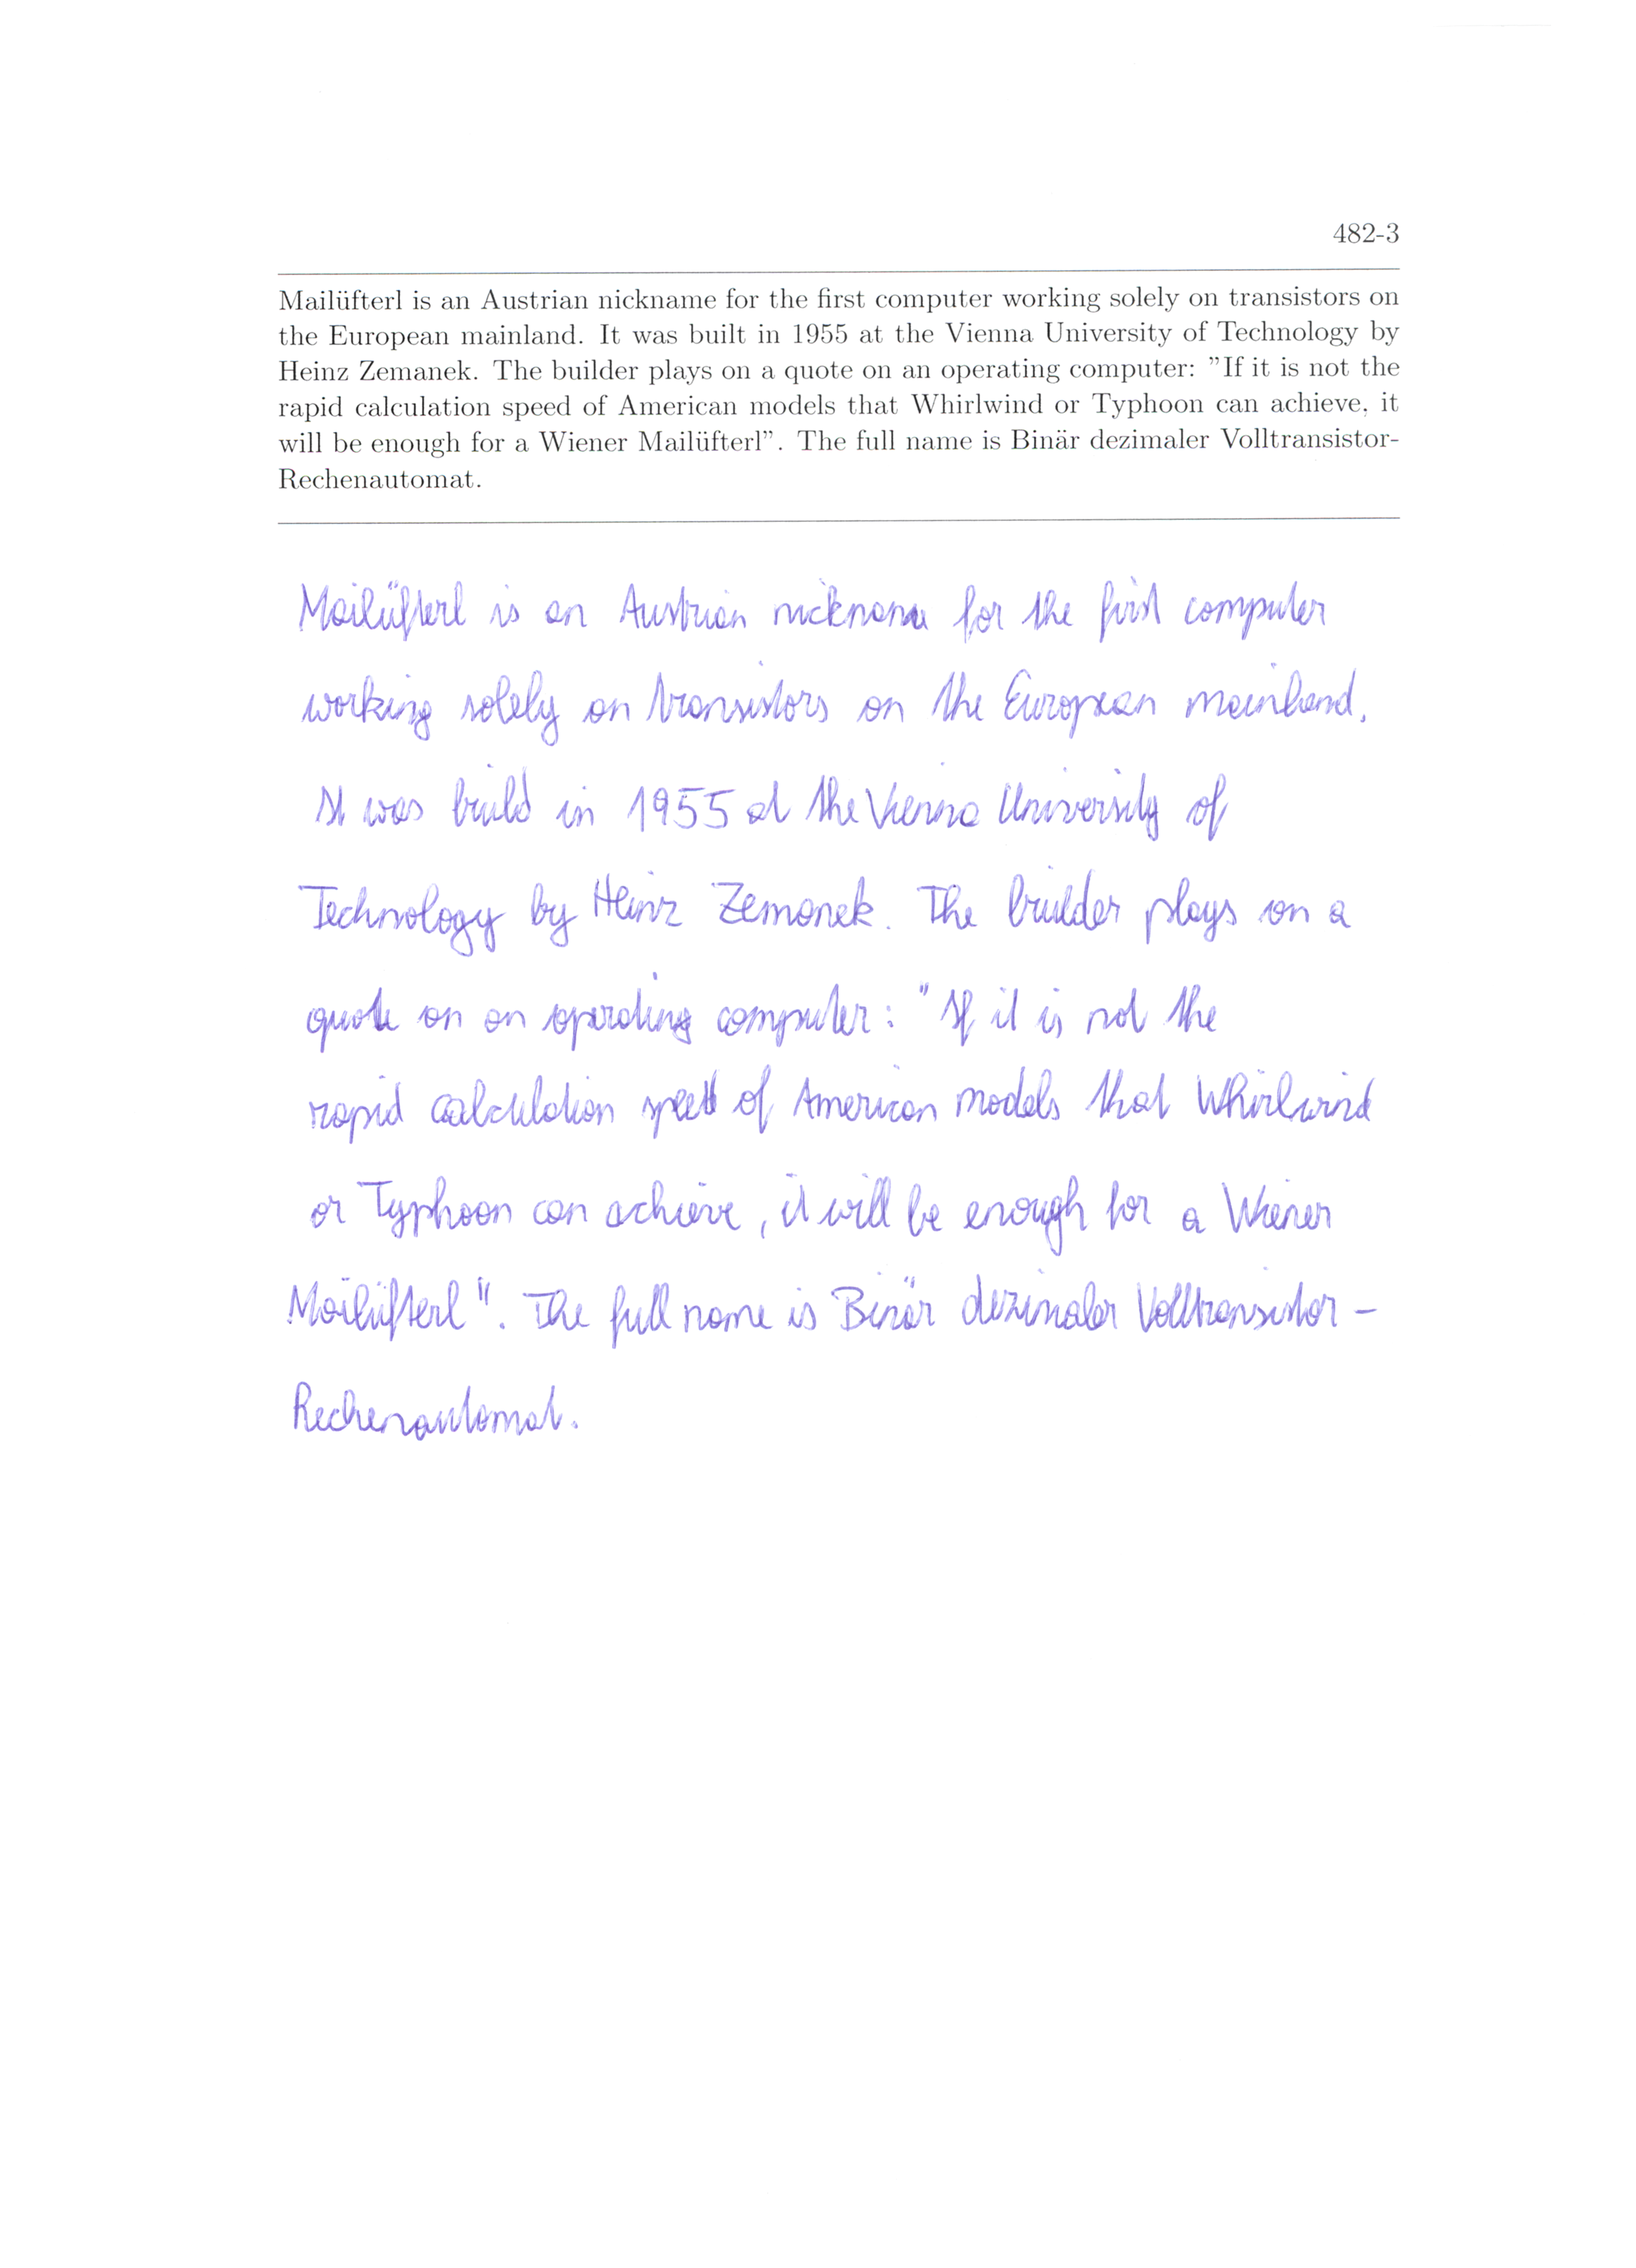 482-3
Mailüfterl is an Austrian nickname for the first computer working solely on transistors on
the European mainland. It was built in 1955 at the Vienna University of Technology by
Heinz Zemanek. The builder plays on a quote on an operating computer: ”If it is not the
rapid calculation speed of American models that Whirlwind or Typhoon can achieve, it
will be enough for a Wiener Mailüfterl”. The full name is Binär dezimaler Volltransistor-
Rechenautomat.
Mailüfterl is an Austrian nickname for the first computer
working solely on transistors on the European mainland.
It was build in 1955 at the Vienna University of
Technology by Heinz Zemanek. The builder plays on a
quote on an operating computer: "If it is not the
rapid calculation speed of American models that Whirlwind
or Typhoon can achieve, it will be enough for a Wiener
Mailüfterl". The full name is Binär dezimaler Volltransistor-
Rechenautomat.